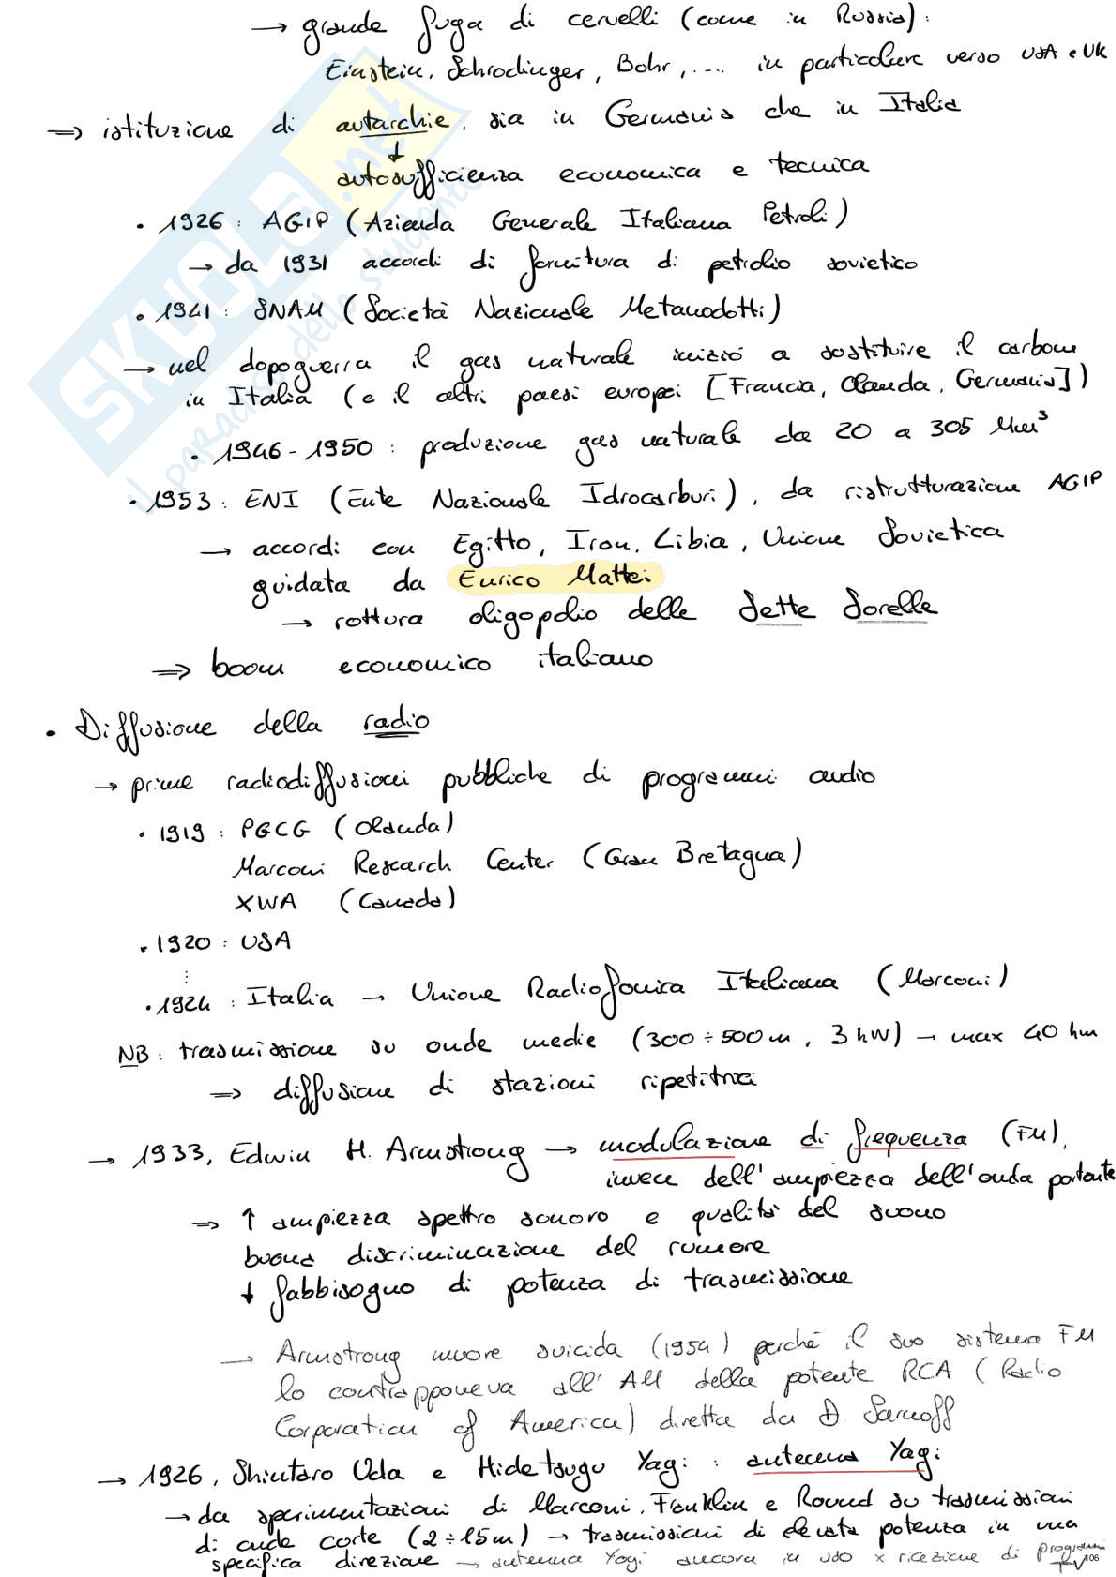 → grande fuga di cervelli (come in Russia):
Einstein, Schrodinger, Bohr, .... in particolare verso USA e UK
⇒ istituzione di autarchie sia in Germania che in Italia
↓
autosufficienza economica e tecnica
• 1926: AGIP (Azienda Generale Italiana Petroli)
→ da 1931 accordi di fornitura di petrolio sovietico
• 1941: SNAM (Società Nazionale Metanodotti)
→ nel dopoguerra il gas naturale iniziò a sostituire il carbone
in Italia (e il altri paesi europei [Francia, Olanda, Germania])
• 1946-1950: produzione gas naturale da 20 a 305 Mm³
• 1953: ENI (Ente Nazionale Idrocarburi), da ristrutturazione AGIP
→ accordi con Egitto, Iran, Libia, Unione Sovietica
guidata da Enrico Mattei
→ rottura oligopolio delle Sette Sorelle
⇒ boom economico italiano
• Diffusione della radio
→ prime radiodiffusioni pubbliche di programmi audio
• 1919: PGCG (Olanda)
Marconi Research Center (Gran Bretagna)
XWA (Canada)
• 1920: USA
⋮
• 1924: Italia → Unione Radiofonica Italiana (Marconi)
NB: trasmissione su onde medie (300÷500m, 3 kW) → max 40 km
⇒ diffusione di stazioni ripetitrici
→ 1933, Edwin H. Armstrong → modulazione di frequenza (FM),
invece dell'ampiezza dell'onda portante
⇒ ↑ ampiezza spettro sonoro e qualità del suono
buona discriminazione del rumore
↓ fabbisogno di potenza di trasmissione
→ Armstrong muore suicida (1954) perché il suo sistema FM
lo contrapponeva all'AM della potente RCA (Radio
Corporation of America) diretta da D Sarnoff
→ 1926, Shintaro Uda e Hidetsugu Yagi: antenna Yagi
→ da sperimentazioni di Marconi, Franklin e Round su trasmissioni
di onde corte (2÷15m) → trasmissioni di elevata potenza in una
specifica direzione → antenna Yagi ancora in uso x ricezione di programmi
TV 106
SKUOLA.net
il paradiso dello studente